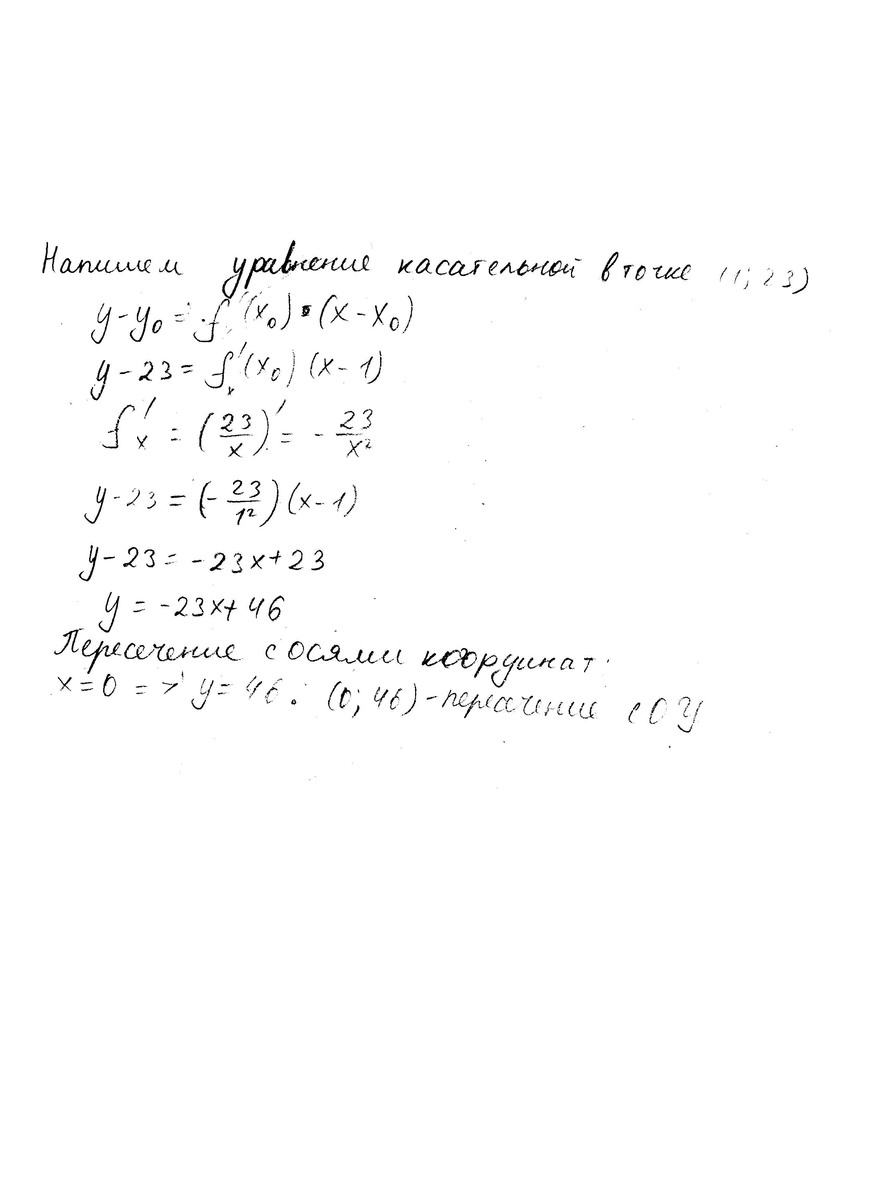 Напишем уравнение касательной в точке (1; 23)
y - y₀ = f'(x₀) · (x - x₀)
y - 23 = f'ₓ(x₀) (x - 1)
f'ₓ = (23/x)' = - 23/x²
y - 23 = (- 23/1²) (x - 1)
y - 23 = -23x + 23
y = -23x + 46
Пересечение с осями координат:
x = 0 => y = 46. (0; 46) - пересечение с OY